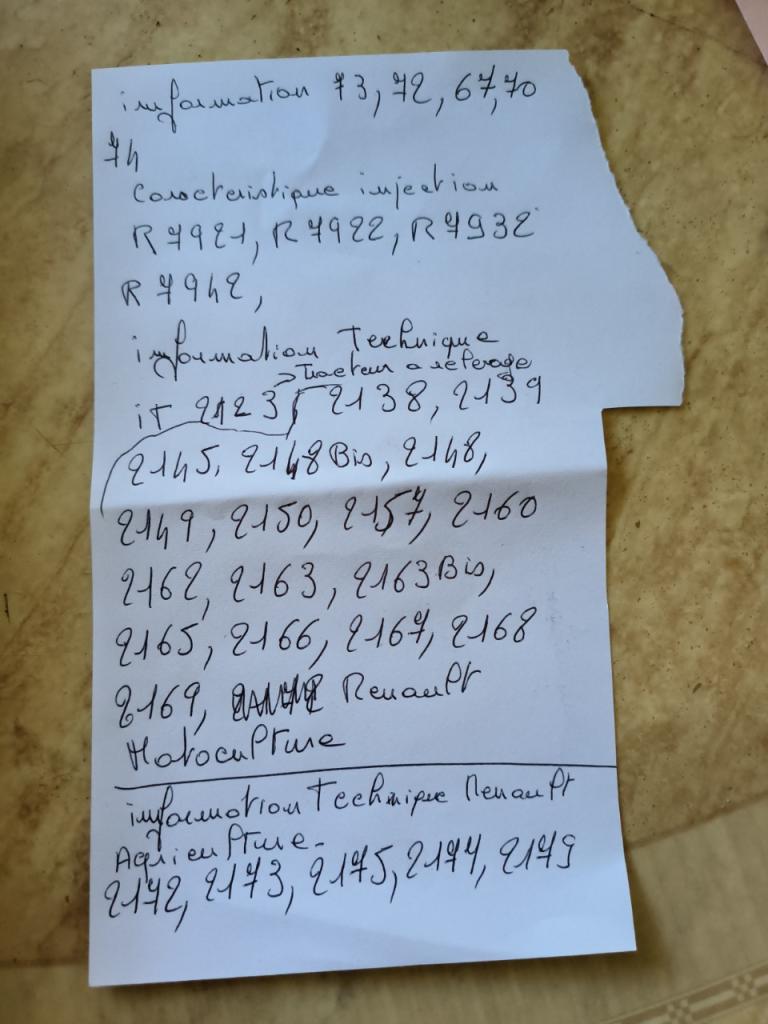 information 73, 72, 67, 70
74
Caracteristique injection
R 7921, R 7922, R 7932
R 7942,
information Technique
Tracteur a relevage
iT 2123 2138, 2139
2145, 2148 Bis, 2148,
2149, 2150, 2157, 2160
2162, 2163, 2163 Bis,
2165, 2166, 2167, 2168
2169, Renault
Motoculture
information Technique Renault
Agriculture.
2172, 2173, 2175, 2177, 2179